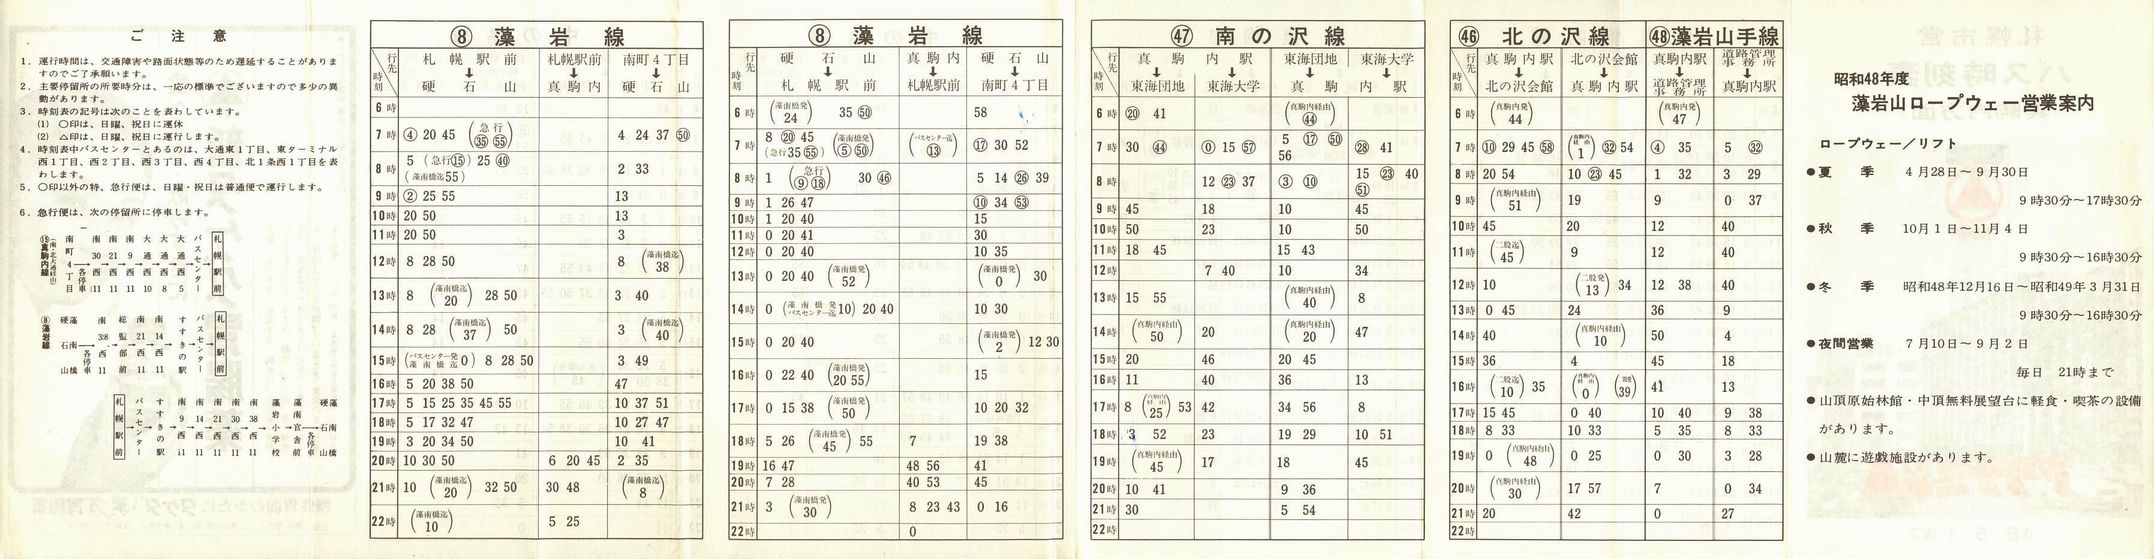 ご注意
1．運行時間は、交通障害や路面状態等のため遅延することがありま
すのでご了承願います。
2．主要停留所の所要時分は、一応の標準でございますので多少の異
動があります。
3．時刻表の記号は次のことを表わしています。
(1) ○印は、日曜、祝日に運休
(2) △印は、日曜、祝日に運行します。
4．時刻表中バスセンターとあるのは、大通東1丁目、東ターミナル
西1丁目、西2丁目、西3丁目、西4丁目、北1条西1丁目を表
わします。
5．○印以外の特、急行便は、日曜・祝日は普通便で運行します。
6．急行便は、次の停留所に停車します。
⑧ 藻岩線
行先 時刻
札幌駅前→硬石山
札幌駅前→真駒内
南町4丁目→硬石山
6時
7時 ④ 20 45 (急行 ㉟ 55) 4 24 37 ㊿
8時 5 (急行⑮) 25 ㊵ (藻南橋迄55) 2 33
9時 ② 25 55 13
10時 20 50 13
11時 20 50 3
12時 8 28 50 8 (藻南橋迄 38)
13時 8 (藻南橋迄 20) 28 50 3 40
14時 8 28 (藻南橋迄 37) 50 3 (藻南橋迄 40)
15時 (バスセンター発 藻南橋迄 0) 8 28 50 3 49
16時 5 20 38 50 47
17時 5 15 25 35 45 55 10 37 51
18時 5 17 32 47 10 27 47
19時 3 20 34 50 10 41
20時 10 30 50 6 20 45 2 35
21時 10 (藻南橋迄 20) 32 50 30 48 (藻南橋迄 8)
22時 (藻南橋迄 10) 5 25
⑧ 藻岩線
行先 時刻
硬石山→札幌駅前
真駒内→札幌駅前
硬石山→南町4丁目
6時 (藻南橋発 24) 35 ㊿ 58
7時 8 ⑳ 45 (急行35 55) (藻南橋発 ⑤ ㊿) (バスセンター迄 ⑬) ⑰ 30 52
8時 1 (急行 ⑨ ⑱) 30 ㊻ 5 14 ㉖ 39
9時 1 26 47 ⑩ 34 53
10時 1 20 40 15
11時 0 20 41 30
12時 0 20 40 10 35
13時 0 20 40 (藻南橋発 52) (藻南橋発 0) 30
14時 0 (藻南橋発 バスセンター迄 10) 20 40 10 30
15時 0 20 40 (藻南橋発 2) 12 30
16時 0 22 40 (藻南橋発 20 55) 15
17時 0 15 38 (藻南橋発 50) 10 20 32
18時 5 26 (藻南橋発 45) 55 7 19 38
19時 16 47 48 56 41
20時 7 28 40 53 45
21時 3 (藻南橋発 30) 8 23 43 0 16
22時 0
㊼ 南の沢線
行先 時刻
真駒内駅→東海団地
真駒内駅→東海大学
東海団地→真駒内駅
東海大学→真駒内駅
6時 ⑳ 41 (真駒内経由 ㊹)
7時 30 ㊹ ⓪ 15 57 5 ⑰ ㊿ 56 ㉘ 41
8時 12 ㉓ 37 ③ ⑩ 15 ㉓ 40 51
9時 45 18 10 45
10時 50 23 10 50
11時 18 45 15 43
12時 7 40 10 34
13時 15 55 (真駒内経由 40) 8
14時 (真駒内経由 50) 20 (真駒内経由 20) 47
15時 20 46 20 45
16時 11 40 36 13
17時 8 (真駒内経由 25) 53 42 34 56 8
18時 3 52 23 19 29 10 51
19時 (真駒内経由 45) 17 18 45
20時 10 41 9 36
21時 30 5 54
22時
㊻ 北の沢線 ㊽藻岩山手線
行先 時刻
真駒内駅→北の沢会館
北の沢会館→真駒内駅
真駒内駅→道路管理事務所
道路管理事務所→真駒内駅
6時 (真駒内発 44) (真駒内発 47)
7時 ⑩ 29 45 58 (真駒内経由 1) ㉜ 54 ④ 35 5 ㉜
8時 20 54 10 ㉓ 45 1 32 3 29
9時 (真駒内経由 51) 19 9 0 37
10時 45 20 12 40
11時 (二股迄 45) 9 12 40
12時 10 (二股発 13) 34 12 38 40
13時 0 45 24 36 9
14時 40 (真駒内経由 10) 50 4
15時 36 4 45 18
16時 (二股迄 10) 35 (真駒内経由 0) (二股発 ㊴) 41 13
17時 15 45 0 40 10 40 9 38
18時 8 33 10 33 5 35 8 33
19時 0 (真駒内経由 48) 0 25 0 30 3 28
20時 (真駒内経由 30) 17 57 7 0 34
21時 20 42 0 27
22時
昭和48年度
藻岩山ロープウェー営業案内
ロープウェー／リフト
●夏季 4月28日〜9月30日
9時30分〜17時30分
●秋季 10月1日〜11月4日
9時30分〜16時30分
●冬季 昭和48年12月16日〜昭和49年3月31日
9時30分〜16時30分
●夜間営業 7月10日〜9月2日
毎日 21時まで
●山頂原始林館・中頂無料展望台に軽食・喫茶の設備
があります。
●山麓に遊戯施設があります。